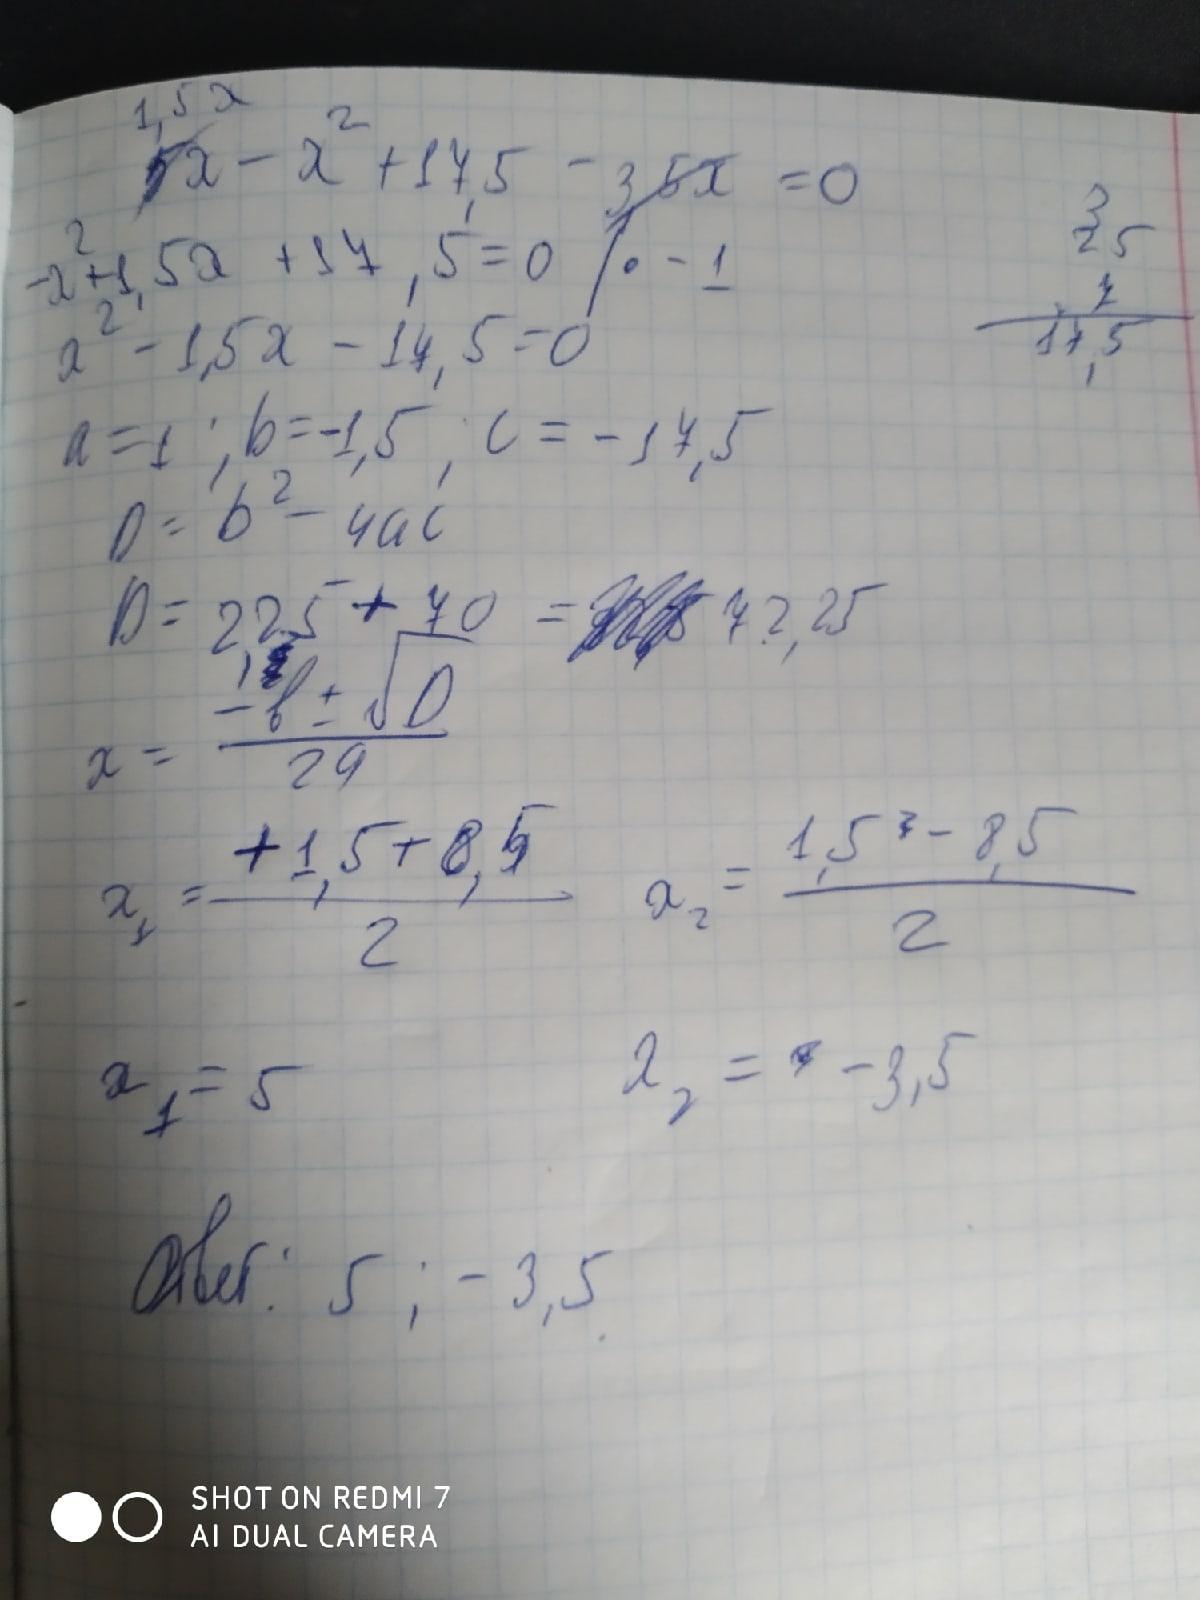 1,5x
5x - x² + 17,5 - 3,5x = 0
-x² + 1,5x + 17,5 = 0 / · - 1
x² - 1,5x - 17,5 = 0
3
25
7
17,5
a = 1 ; b = -1,5 ; c = -17,5
D = b² - 4ac
D = 2,25 + 70 = 72,25
x = (-b ± √D) / 2a
x₁ = (+1,5 + 8,5) / 2
x₂ = (1,5 - 8,5) / 2
x₁ = 5
x₂ = -3,5
Ответ: 5 ; -3,5.
SHOT ON REDMI 7
AI DUAL CAMERA